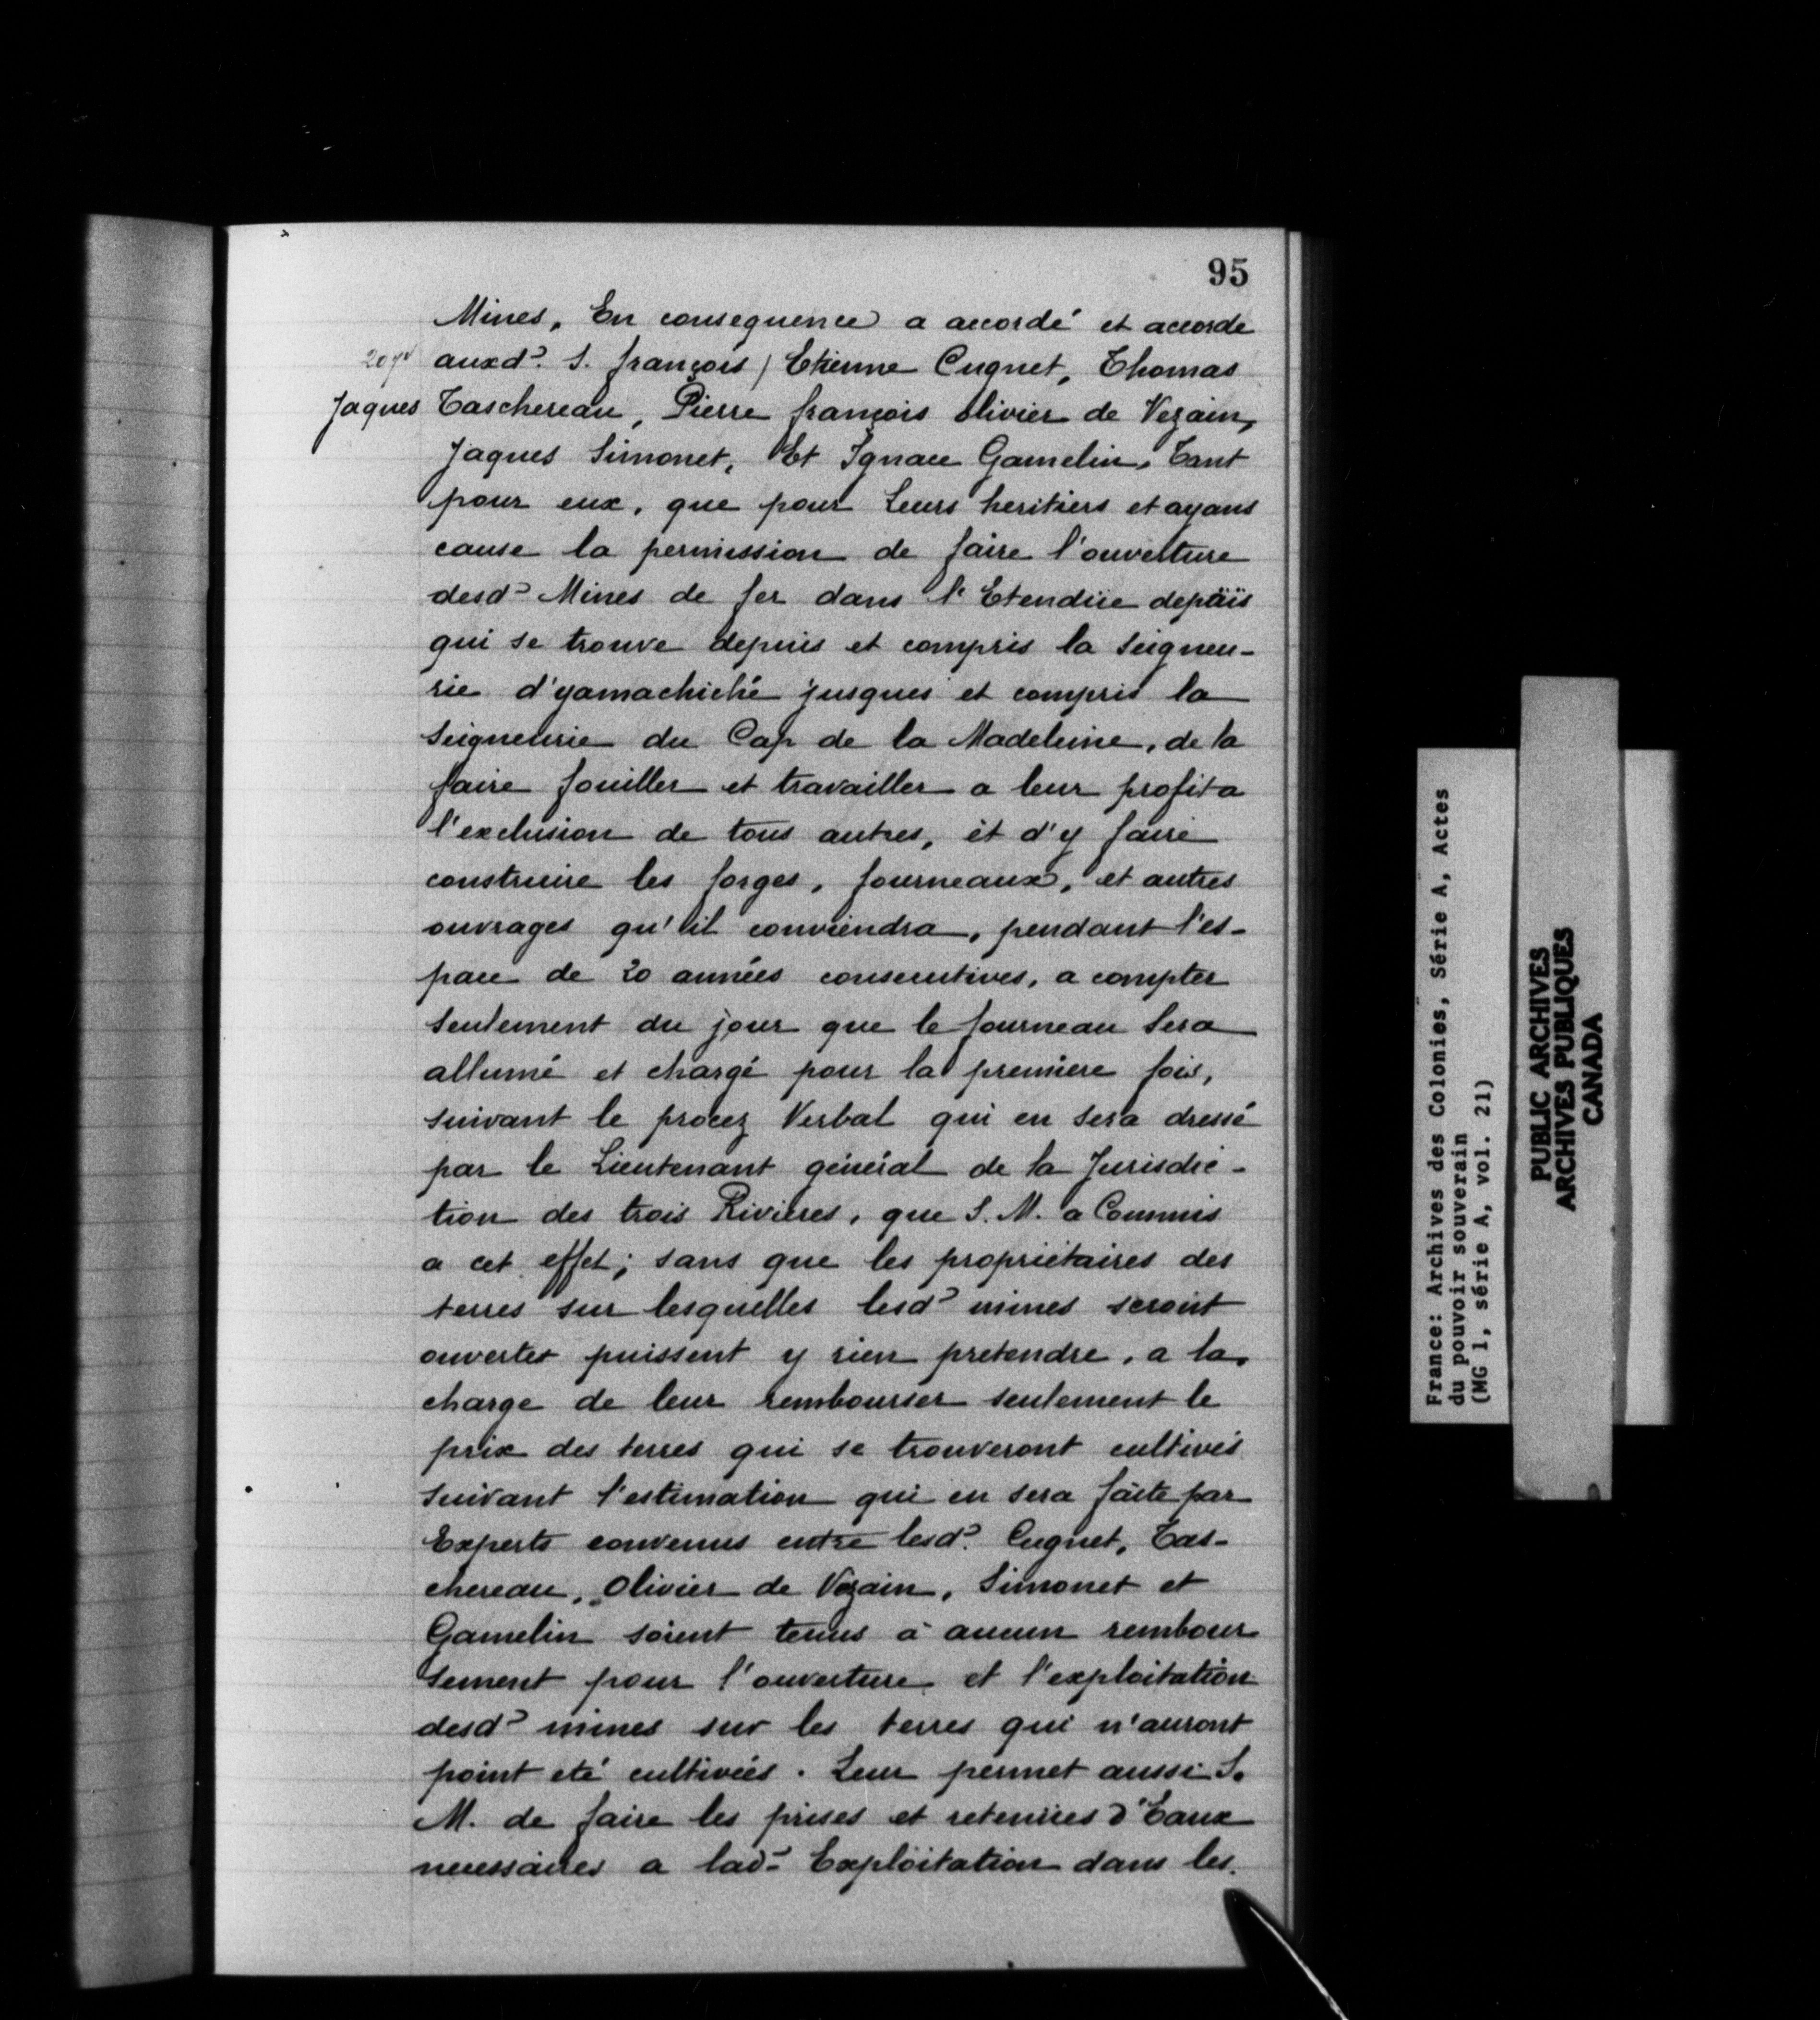 95
Mines, En consequence a accordé et accorde
207v auxd? S. françois / Etienne Cugnet, Thomas
Jaques Taschereau, Pierre françois olivier de Vezain,
Jaques Simonet, Et Ignace Gamelin, Tant
pour eux, que pour Leurs heritiers et ayans
cause la permission de faire l'ouverture
desd? Mines de fer dans l'Etendüe depüis
qui se trouve depuis et compris la Seigneu-
rie d'yamachiché jusques et compris la
Seigneurie du Cap de la Madeleine, de la
faire fouiller et travailler a leur profit a
l'exclusion de tous autres, et d'y faire
construire les forges, fourneaux, et autres
ouvrages qu'il conviendra, pendant l'es-
pace de 20 années consecutives, a compter
seulement du jour que le fourneau Sera
allumé et chargé pour la première fois,
suivant le procez Verbal qui en sera dressé
par le Lieutenant général de la Jurisdic-
tion des trois Rivieres, que S. M. a Commis
a cet effet; sans que les propriétaires des
terres sur lesquelles lesd? mines seront
ouvertes puissent y rien pretendre, a la
charge de leur rembourser seulement le
prix des terres qui se trouveront cultivés
suivant l'estimation qui en sera faite par
Experts convenus entre lesd? Cugnet, Tas-
chereau, Olivier de Vezain, Simonet et
Gamelin soient tenus à aucun rembour
sement pour l'ouverture et l'exploitation
desd? mines sur les terres qui n'auront
point eté cultivées. Leur permet aussi S.
M. de faire les prises et retenües d'Eaux
necessaires a lad? Exploitation dans les
France: Archives des Colonies, Série A, Actes
du pouvoir souverain
(MG 1, série A, vol. 21)
PUBLIC ARCHIVES
ARCHIVES PUBLIQUES
CANADA